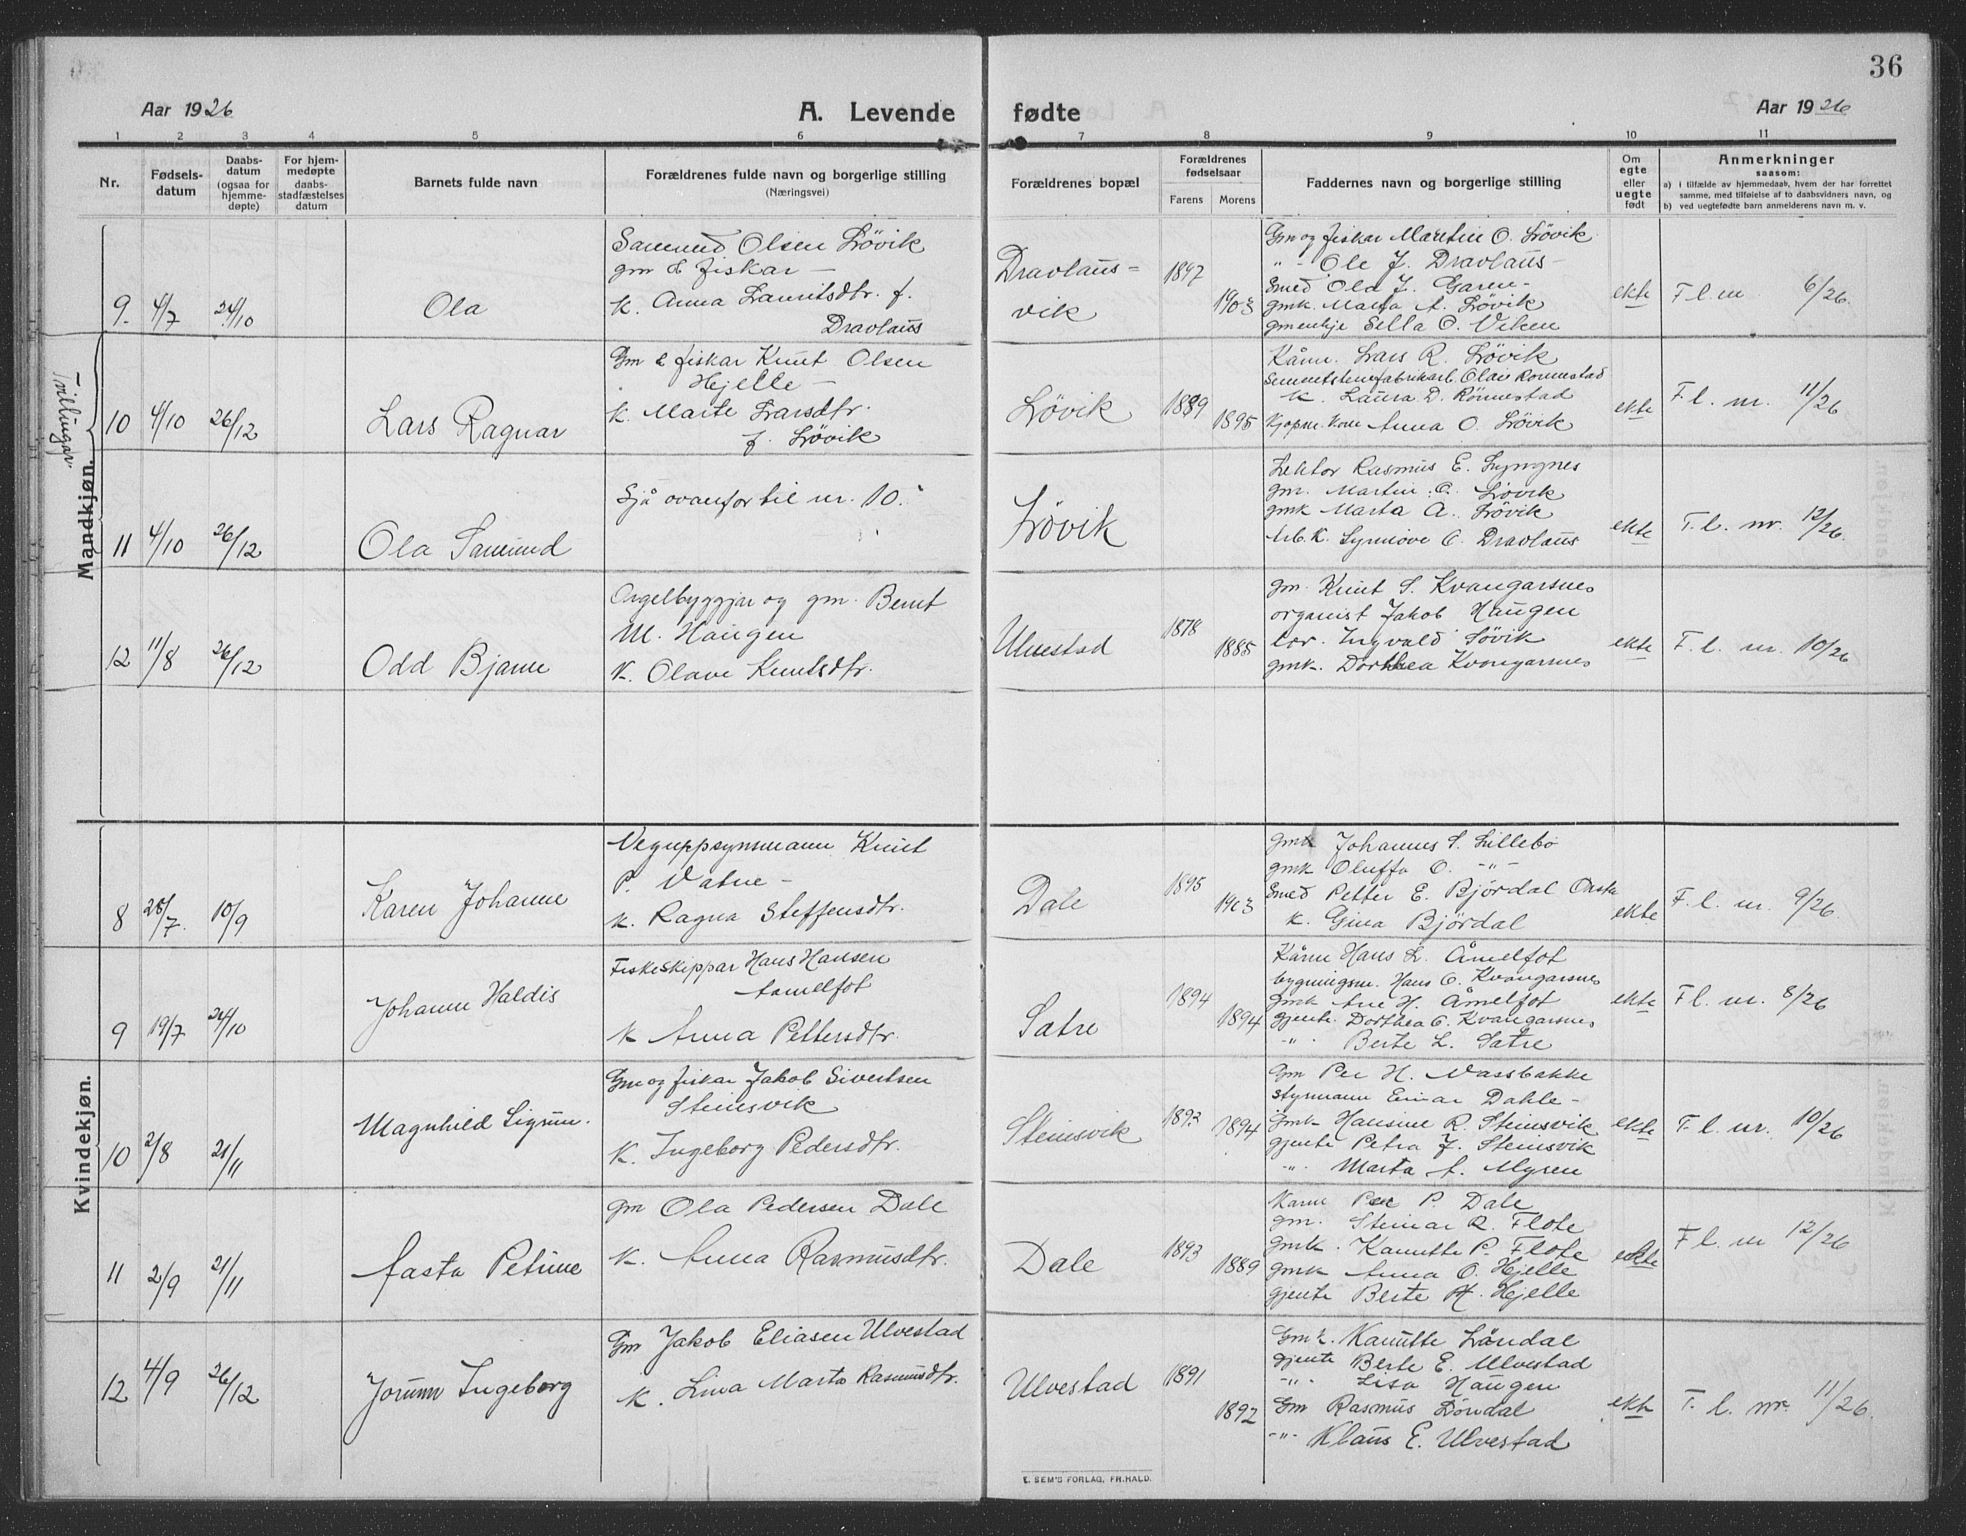 36
Aar 1926
A. Levende fødte
Aar 1926
1 2 3 4 5 6 7 8 9 10 11
Nr.
Fødsels-
datum
Daabs-
datum
(ogsaa for
hjemme-
døpte)
For hjem-
medøpte
daabs-
stadfæstelses
datum
Barnets fulde navn
Forældrenes fulde navn og borgerlige stilling
(Næringsvei)
Forældrenes bopæl
Forældrenes
fødselsaar
Farens Morens
Faddernes navn og borgerlige stilling
Om
egte
eller
uegte
født
Anmerkninger
saasom:
a) i tilfælde av hjemmedaab, hvem der har forrettet
samme, med tilføielse af to daabsvidners navn, og
b) ved uegtefødte barn anmelderens navn m. v.
Mandkjøn.
Tvillingar
9. 4/7 24/10
Ola
Samund Olsen Løvik
gm & fiskar –
K. Anna Lauritsdtr. f.
Dravlaus
Dravlaus-
vik
1897
1903
Gm og fiskar Martin O. Løvik
" Ole J. Dravlaus
Smed Ola J. Garen
gmk. Marta A. Løvik
gmenkje Sella O. Viken
ekte
F. l. nr 6/26.
10 4/10 26/12
Lars Ragnar
Gm & fiskar Knut Olsen
Hjelle –
K. Marte Larsdtr.
f. Løvik
Løvik
1889
1895
Kårm. Lars R. Løvik
Sementstenfabrikarb. Olav Rønnestad
K. Laura D. Rønnestad
Kjøpm. kone Anna O. Løvik
ekte
F. l. nr. 11/26
11 4/10 26/12
Ola Samund
Sjå ovanfor til nr. 10.
Løvik
Lektor Rasmus E. Lyngnes
gm. Martin O. Løvik
gmk Marta A. Løvik
Arb. K. Synnøve O. Dravlaus
ekte
F. l. nr. 12/26.
12 11/8 26/12
Odd Bjarne
Orgelbyggjar og gm. Bernt
M. Haugen
K. Olave Knutsdtr.
Ulvestad
1878
1885
gm. Knut S. Kvangarsnes
organist Jakob Haugen
lær. Ingvald Løvik
gmk. Dorthea Kvangarsnes
ekte
F. l. nr. 10/26
Kvindekjøn.
8 28/7. 10/9
Karen Johanne
Veguppsynsmann Knut
P. Vatne –
K. Ragna Steffensdtr.
Dale
1895
1903
gm Johannes S. Lillebø
gmk Oluffa O. -"-
Smed Petter E. Bjørdal Ørsta
K. Gina Bjørdal
ekte
F. l. nr. 9/26.
9 19/7 24/10
Johanne Haldis
Fiskeskippar Hans Hansen
Aamelfot
K Anna Pettersdtr.
Satre
1894
1894
Kårm Hans L. Åmelfot
bygningsm. Hans O. Kvangarsnes
Gmk Ane H. Åmelfot
gjente. Dorthea O. Kvangarsnes
-"- Berte L. Satre
ekte
F l. nr. 8/26
10 2/8 21/11
Magnhild Sigrun.
Gm og fiskar Jakob Sivertsen
Steinsvik
K. Ingeborg Pedersdtr.
Steinsvik
1893
1894
Gm Per H. Vassbakke
Styrmann Einar Dahle –
Gmk Hansine R. Steinsvik
gjente Petra J. Steinsvik
-"- Marta A. Myren
ekte
F. l. nr. 10/26
11 2/9 21/11
Aasta Petrine
gm Ola Pedersen Dale
K. Anna Rasmusdtr.
Dale
1893
1889
Karm Per P. Dale
gm. Steinar R. Flote
gmk. Kanutte P. Flote
gmk Anna O. Hjelle
gjente Berte H. Hjelle
ekte
F l. nr 12/26
12 4/9 26/12
Jorunn Ingeborg
Gm Jakob Eliasen Ulvestad
K. Lina Marta Rasmusdtr.
Ulvestad
1891
1892
Gmk. Kanutte Løndal
gjente Berte E. Ulvestad
-"- Lisa Haugen
Gm Rasmus Løndal
-"- Klaus E. Ulvestad
ekte
F. l. nr. 11/26.
E. SEM'S FORLAG, FR.HALD.